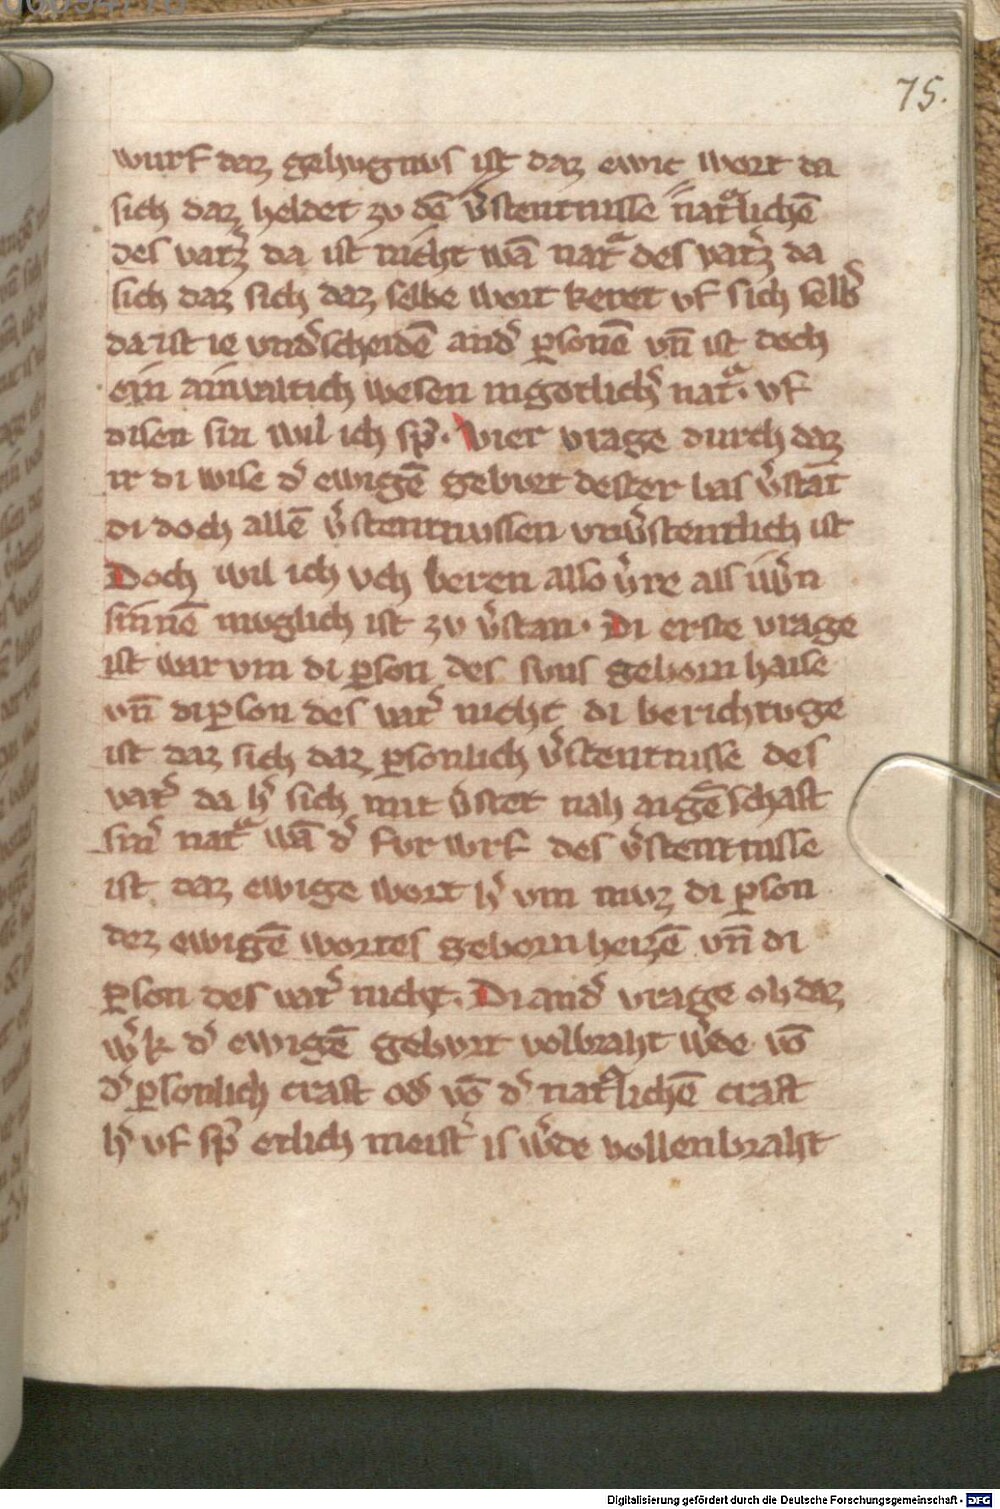 75.
wurf daz gehugnus ist daz ewic wort da
sich daz heldet zv dē v̾stentnisse natͣlichē
des vatz̾ da ist nicht wā natͣ des vatz̾ da
sich daz sich daz selbe wort keret vf sich selb̾
da ist ie vnd̾scheidē and̾ ꝑsonē vn̄ ist doch
ein ainvaltich wesen in gotlich̾ natͣ· vf
disen sin wil ich sp̾· vier vrage durch daz
ir di wise d̾ ewigē geburt dester bas v̾stāt
di doch allē v̾stentnussen vnv̾stentlich ist
Doch wil ich vch beren also v̾re als iuw̾n
sinnē muglich ist zv v̾stan· Di erste vrage
ist war vm di ꝑson des suns geborn haise
vn̄ di ꝑson des vat̾ nicht di berichtvge
ist daz sich daz ꝑsonlich v̾stentnisse des
vat̾ da h̾ sich mit v̾stet nah aigēschaft
sin̾ natͣ wā d̾ fur wrf des v̾stentnisse
ist daz ewige wort h̾ vm muz di ꝑson
dez ewigē wortes geborn heizē vn̄ di
ꝑson des vat̾ nicht· Di and̾ vrage ob daz
w̾k d̾ ewigē geburt volbraht w̾de vō
d̾ ꝑsonlich craft od̾ vō d̾ natͣlichē craft
h̾ vf sp̾ etlich meist̾ is w̾de vollenbraht
Digitalisierung gefördert durch die Deutsche Forschungsgemeinschaft - DFG